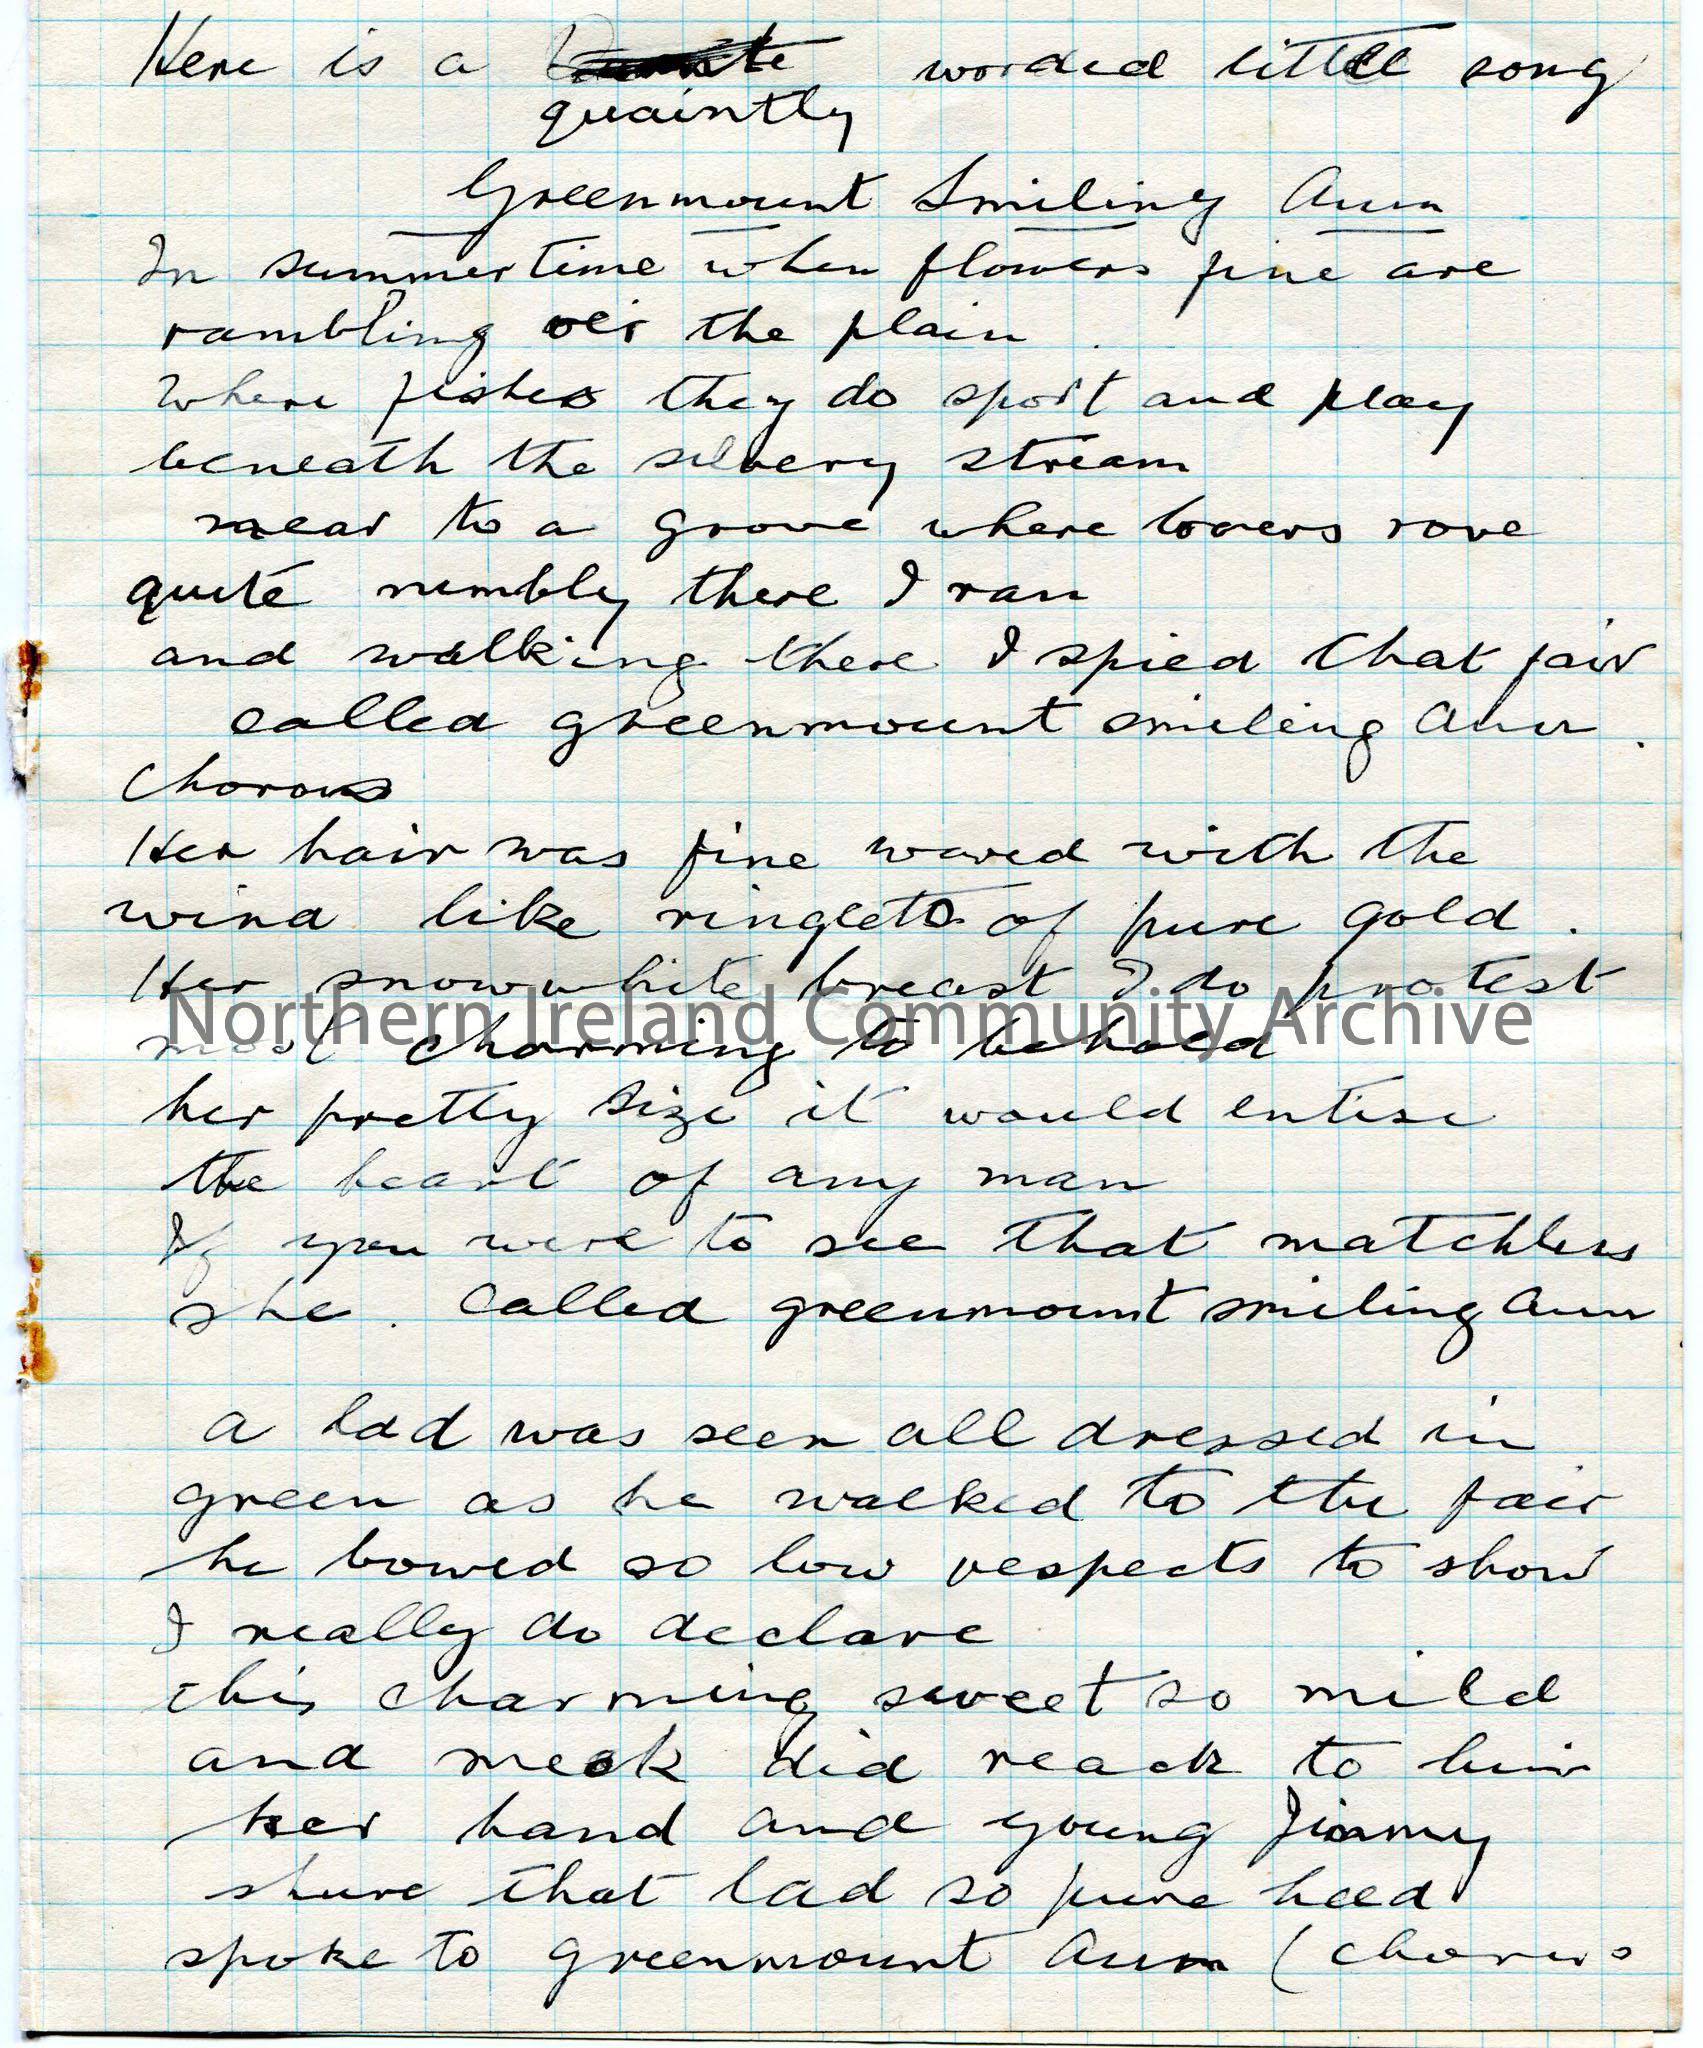 Here is a worded little song
quaintly
Greenmount Smiling Ann
In summertime when flowers fine are
rambling oer the plain.
Where fishes they do sport and play
beneath the silvery stream
near to a grove where lovers rove
quite nimbly there I ran
and walking there I spied that fair
called greenmount smiling Ann.
Chorous
Her hair was fine waved with the
wind like ringlets of pure gold.
Her snowwhite breast I do protest
most charming to behold
her pretty size it would entise
the heart of any man
If you were to see that matchless
she. Called greenmount smiling Ann
A lad was seen all dressed in
green as he walked to the fair
he bowed so low respects to show
I really do declare
this charming sweet so mild
and meek did reach to him
her hand and young Jimmy
shure that lad so pure heed
spoke to greenmount Ann (chorus
Northern Ireland Community Archive